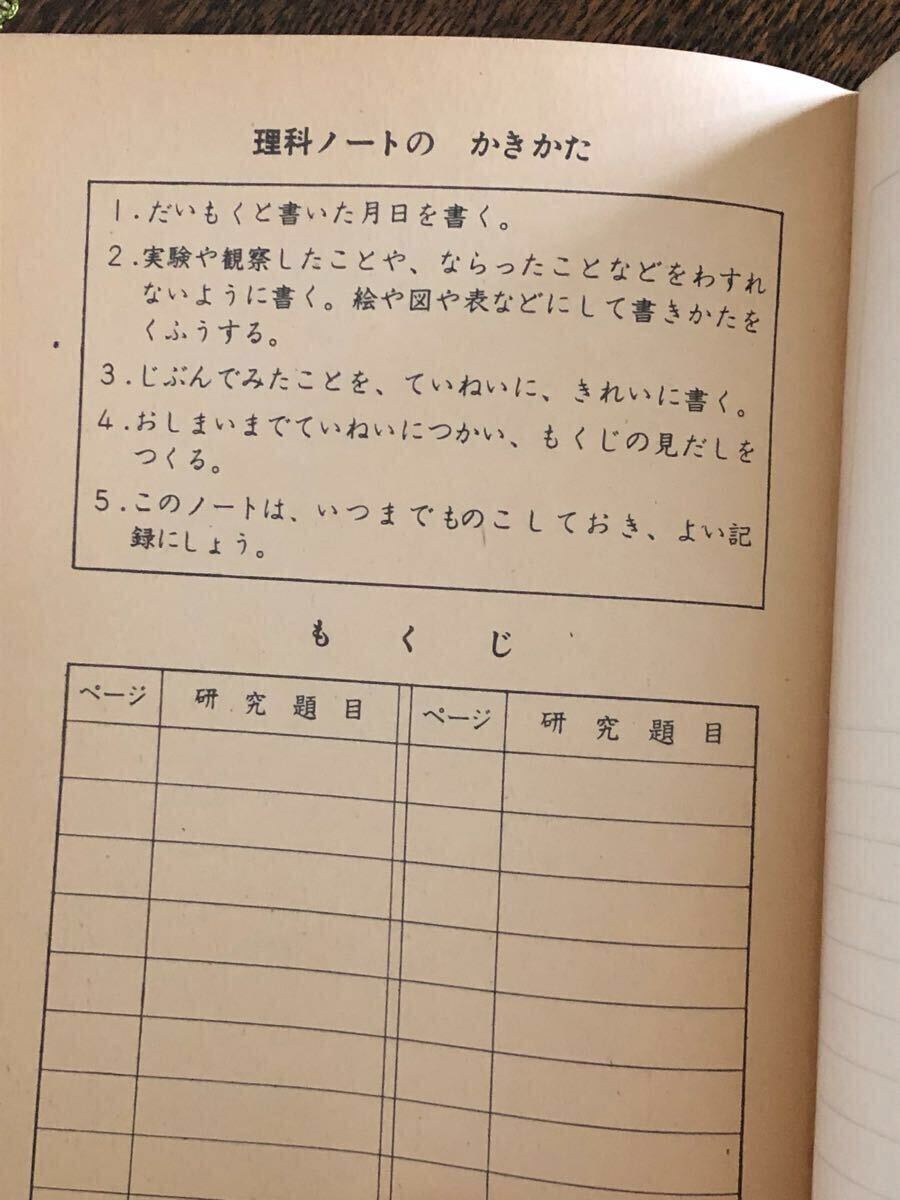 理科ノートの かきかた
1.だいもくと書いた月日を書く。
2.実験や観察したことや、ならったことなどをわすれ
ないように書く。絵や図や表などにして書きかたを
くふうする。
3.じぶんでみたことを、ていねいに、きれいに書く。
4.おしまいまでていねいにつかい、もくじの見だしを
つくる。
5.このノートは、いつまでものこしておき、よい記
録にしょう。
もくじ
ページ 研究題目 ページ 研究題目